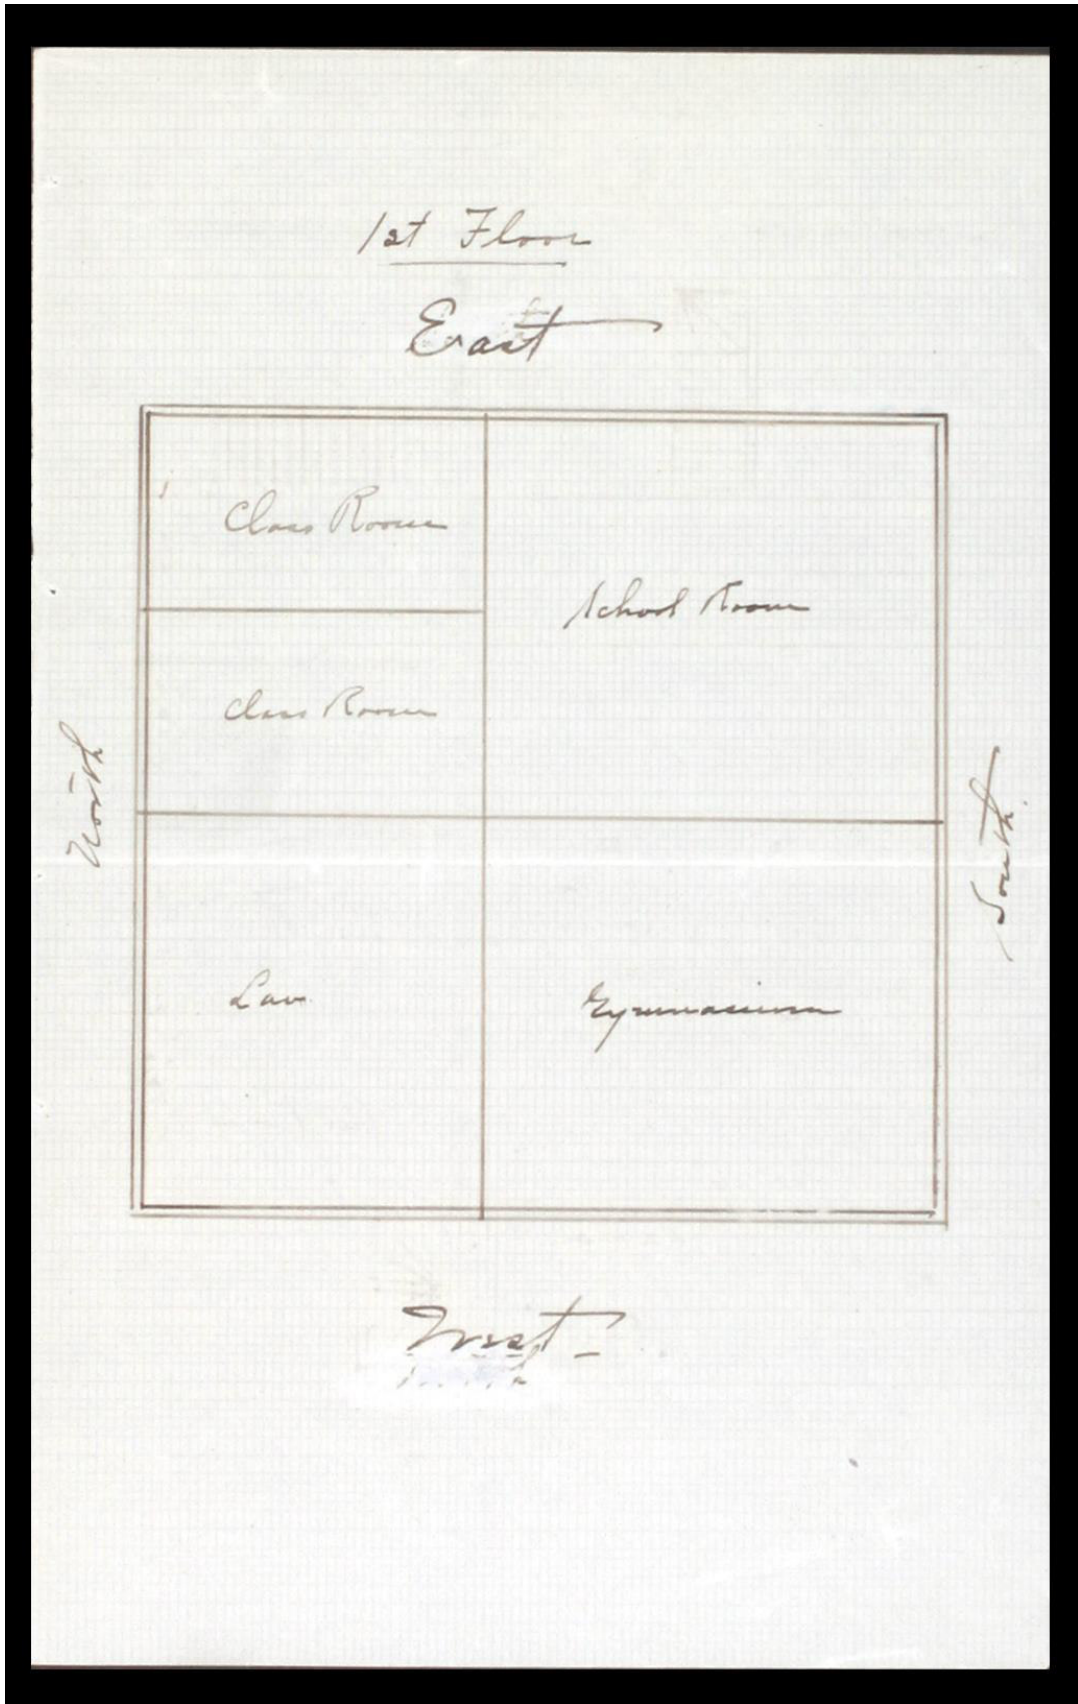 1st Floor
East
Class Room
School Room
Class Room
North
South
Lav
Gymnasium
West